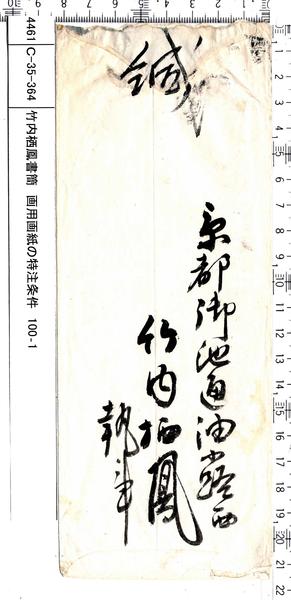 4461 C-35-364 竹内栖鳳書簡 画用画紙の特注条件 100-1
緘
京都御池通油小路西
竹内栖鳳
執事